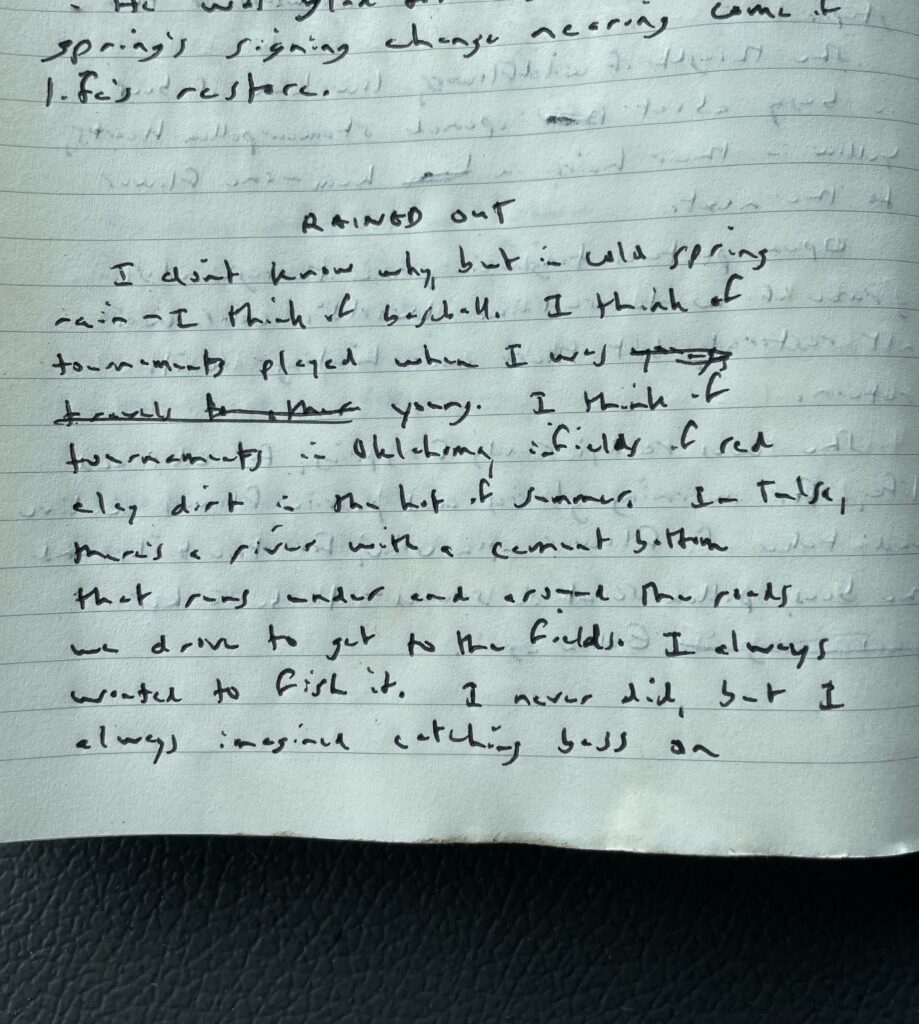 He was glad
spring's signing change nearing come of
life's restore.
RAINED OUT
I don't know why, but in cold spring
rain - I think of baseball. I think of
tournaments played when I was
travel young. I think of
tournaments in Oklahoma, infields of red
clay dirt in the hot of summer. In Tulsa,
there's a river with a cement bottom
that runs under and around the roads
we drove to get to the fields. I always
wanted to fish it. I never did, but I
always imagined catching bass on